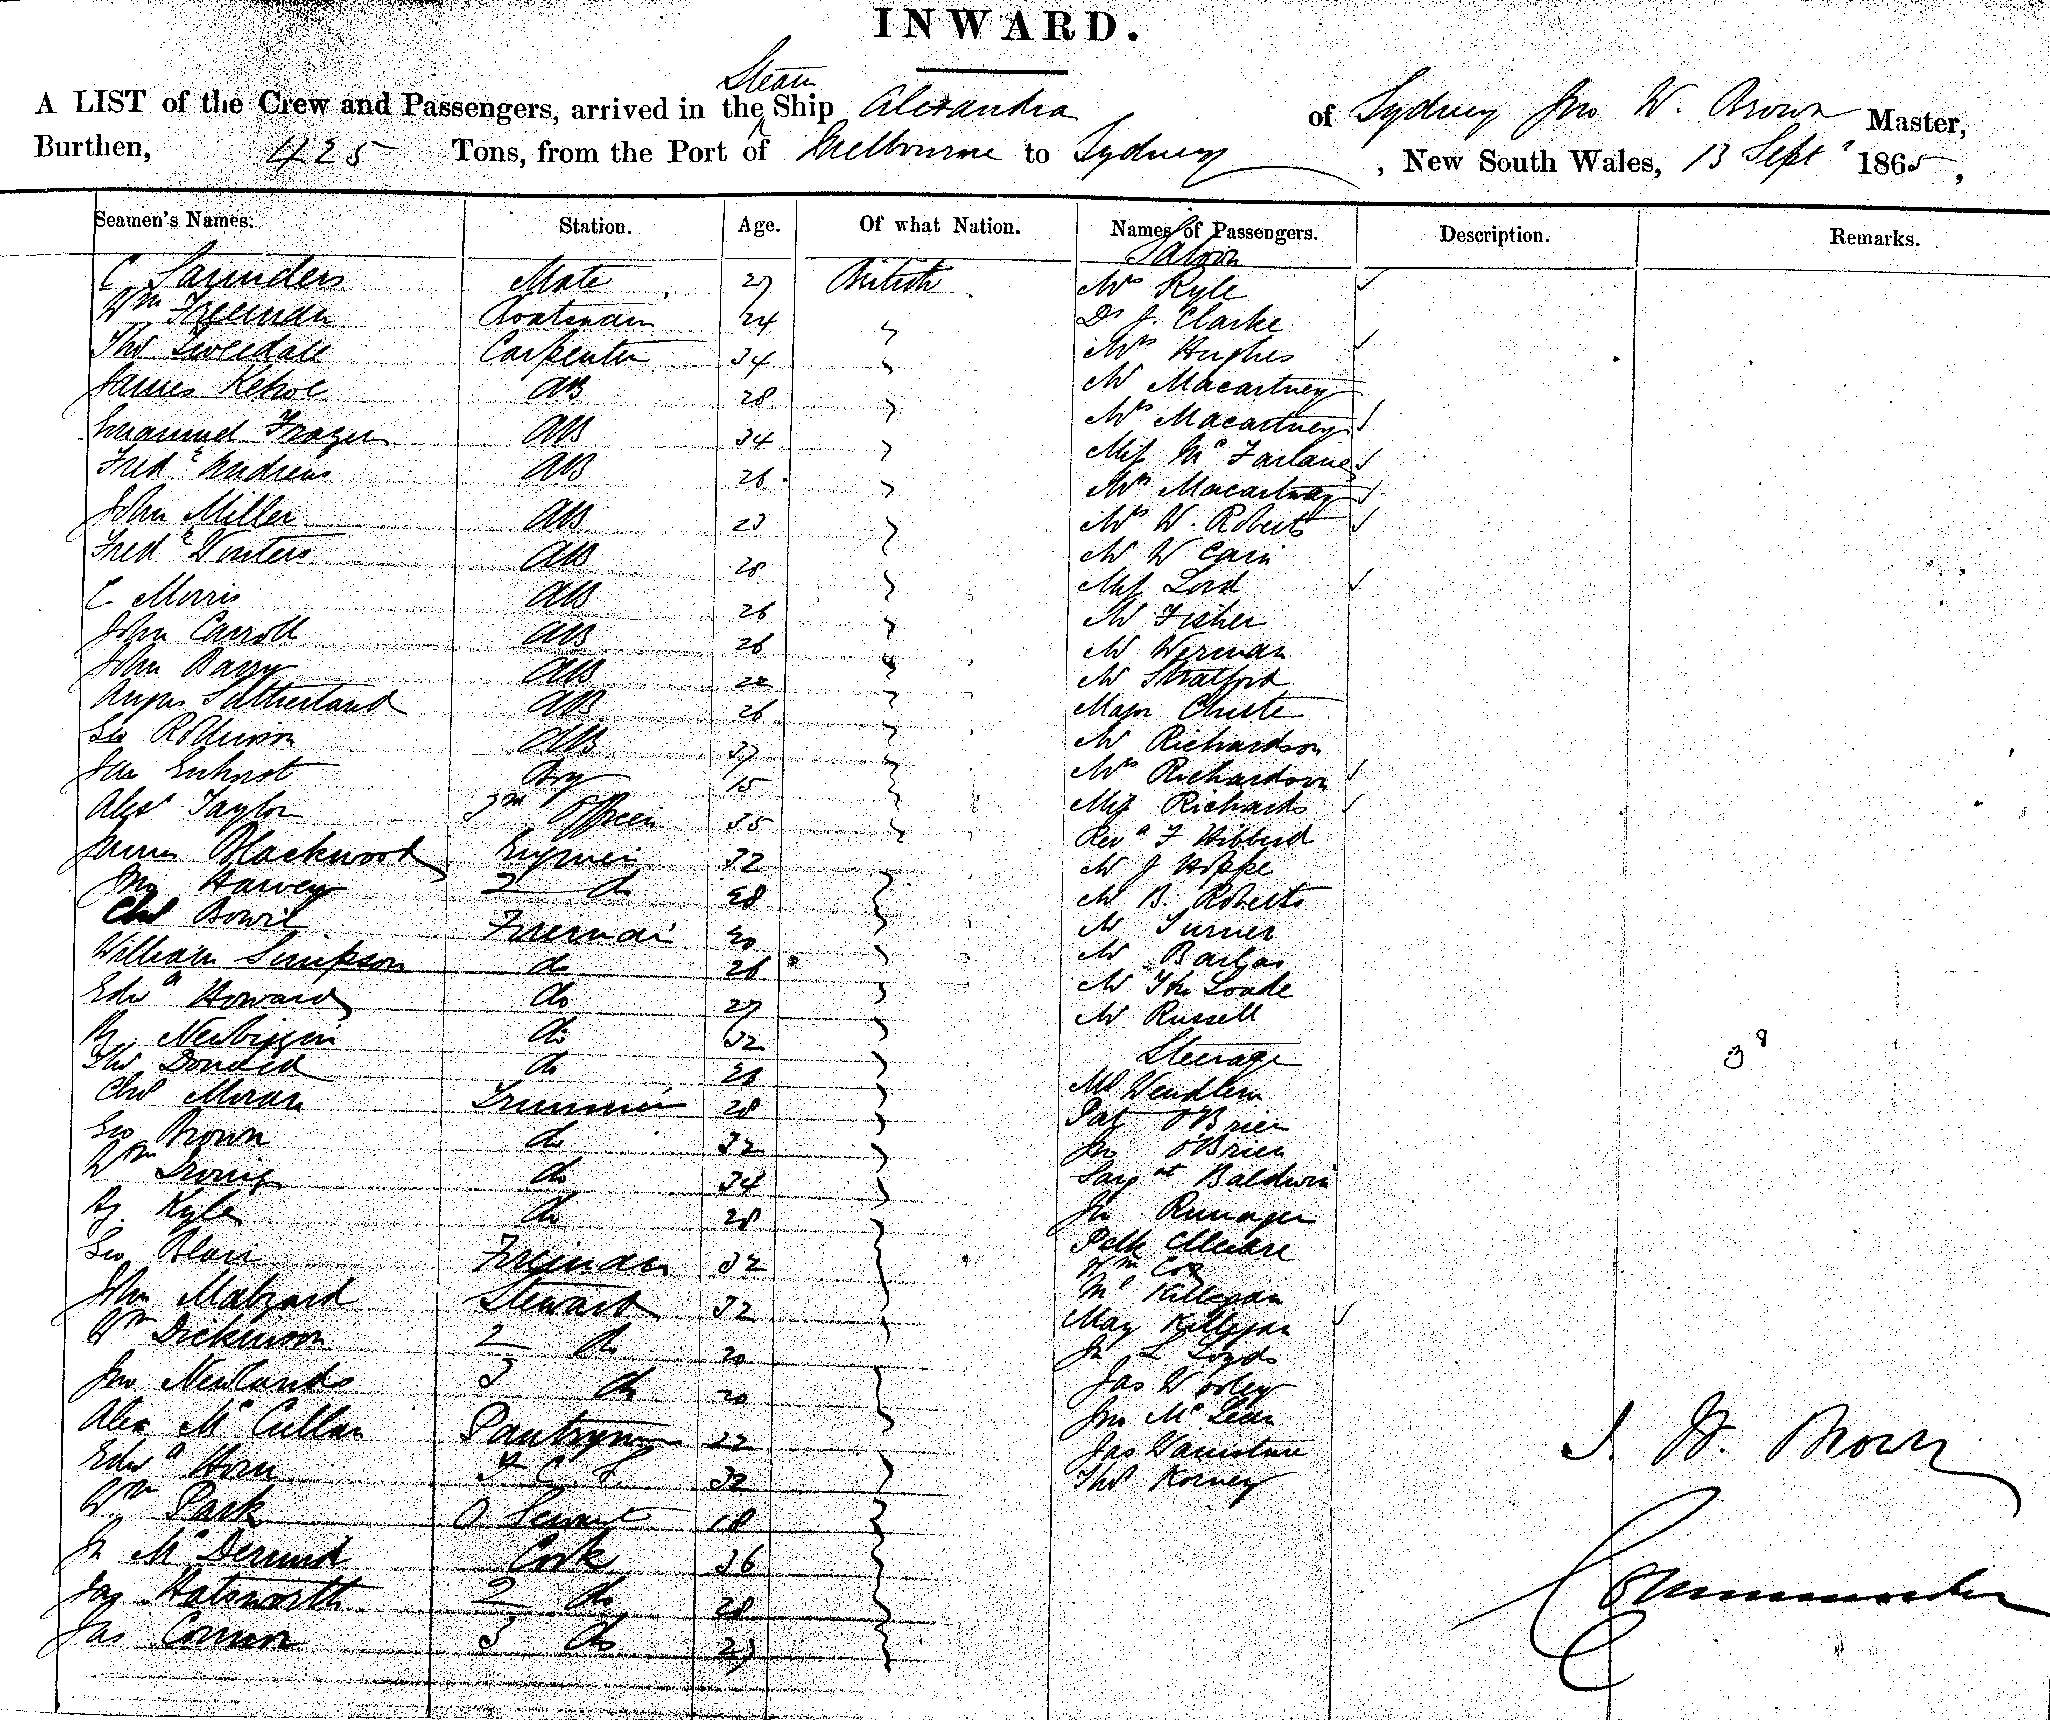 INWARD.
A LIST of the Crew and Passengers, arrived in the Steam Ship Alexandra of Sydney Jno W. Brown Master,
Burthen, 425 Tons, from the Port of Melbourne to Sydney, New South Wales, 13 Sept 1865,
Seamen's Names. Station. Age. Of what Nation. Names of Passengers. Description. Remarks.
Saloon
C Saunders Mate 27 British Mrs Kyle
Wm Freeman Boatswain 24 " Dr J. Clarke
Thos Tweedale Carpenter 34 " Mrs Hughes
James Kehoe AB 28 " Mr Macartney
Emanuel Frazer AB 34 " Mrs Macartney
Fredk Andrews AB 26 " Miss McFarlane
John Miller AB 23 " Mrs Macartney
Fredk Winters AB 28 " Mrs W. Roberts
C. Morris AB 26 " Mr W Cain
John Carroll AB 26 " Miss Lord
John Barry AB " Mr Fisher
Angus Sutherland AB 26 " Mr Werman
Geo Robinson AB 37 " Mr Stratford
Jas Boy 15 " Major
Alexr Taylor 35 " Mr Richardson
James Blackwood Engineer 32 " Mrs Richardson
Jno Harvey 2 do 28 " Miss Richards
Chas Fireman 30 " Revd F Hibberd
William Simpson do 26 " Mr J Hoppe
Edwd Howard do 27 " Mr B. Roberts
Newbiggin do 32 " Mr Turner
Thos do " Mr
Chas Moran Trimmer 28 " Mr
Geo Brown do 32 " Mr Russell
Wm do 34 " Steerage
Kyle do 28 " Wendlem
Geo Blair Fireman 32 " Pat O'Brien
John Steward 32 " Jno O'Brien
Wm Dickinson 2 do 20 " Baldwin
Jno Newlands 3 do 20 " Jno
Alex McCullan Pantryman 22 "
Edwd Horn 32 " Wm Cox
Wm Park Servant 18 " Killegan
Jn McDermid Cook 36 " May Killegan
Jas Hatsworth 2 do 28 "
Jas Connor 3 do 27 " Jas Worley
Jno McLean
Jas
Thos Korney
38
J. W. Brown
Commander